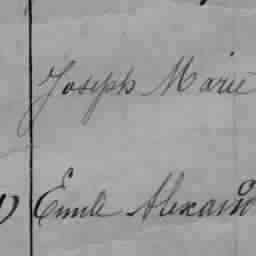 Joseph Marie
Emile Alexand